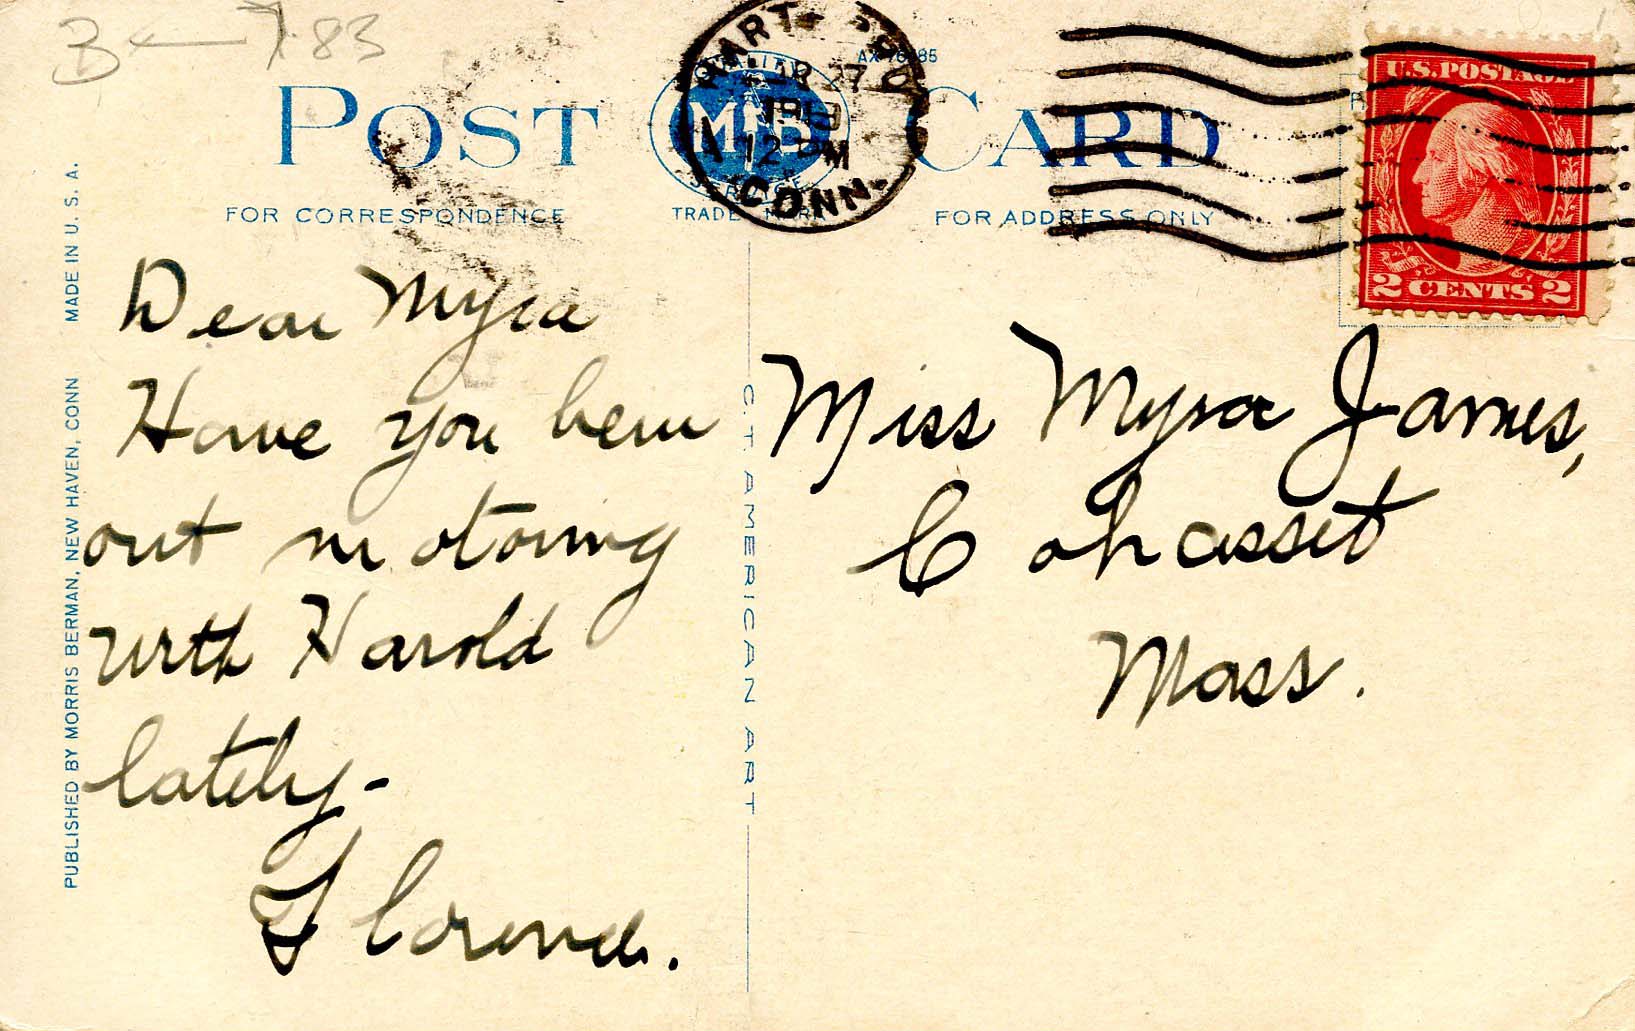 B ← 783
POST CARD
QUALITY
M B
SERVICE
TRADE MARK
HARTFORD
CONN.
APR 27
12 PM
1918
FOR CORRESPONDENCE
FOR ADDRESS ONLY
U.S. POSTAGE
2 CENTS 2
Dear Myra
Have you been
out motoring
with Harold
lately-
Florence.
Miss Myra James,
Cohasset
Mass.
C.T. AMERICAN ART
PUBLISHED BY MORRIS BERMAN, NEW HAVEN, CONN MADE IN U. S. A.